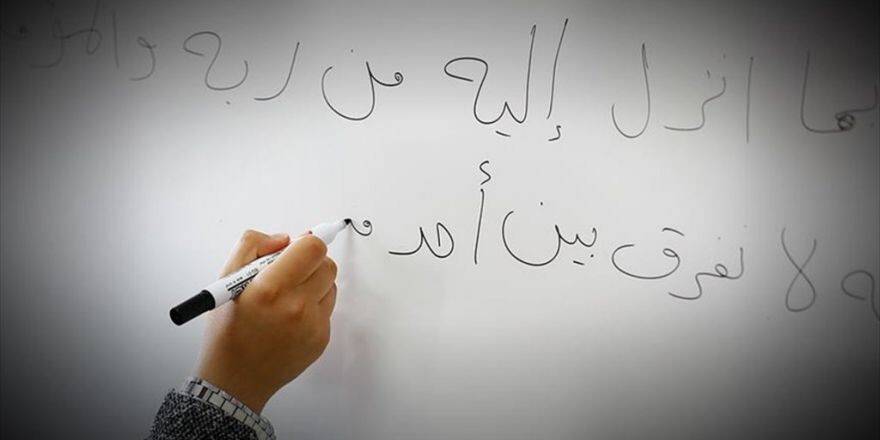 بما انزل إليه من ربه والمؤ
لا نفرق بين أحد م